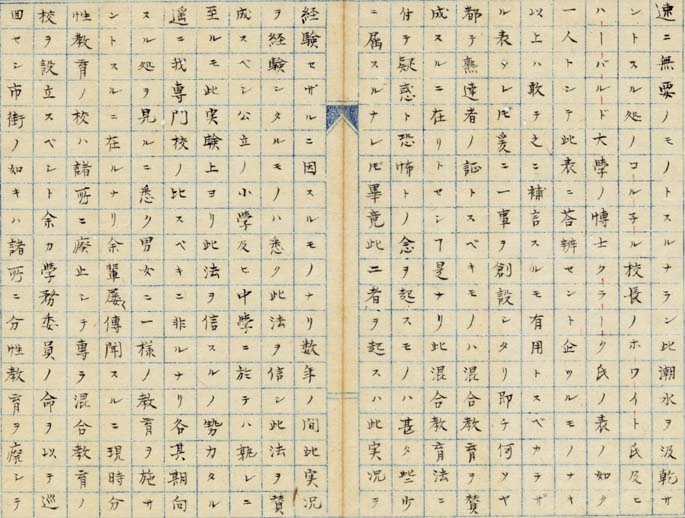 速ニ無要ノモノトスルナラン此潮水ヲ汲乾サ
ントスル処ノコル子ル校長ノホワイト氏及ヒ
ハーバルド大學ノ博士クラーク氏ノ表ノ如ク
一人トシテ此表ニ荅辨セント企ツルモノナキ
以上ハ敢テ之ニ補言スルモ有用トスベカラザ
ル表ンレ𪜈爰ニ一事ヲ創設シタリ即チ何ソヤ
都テ熟達者ノ証トスベキモノハ混合教育ヲ賛
成スルニ在リトセンヿ是ナリ此混合教育法ニ
付テ疑惑ト恐怖トノ念ヲ起スモノハ甚タ些少
ニ属スルナレ𪜈畢竟此二者ヲ起スハ此実况ヲ
経驗セザルニ因スルモノナリ数年ノ間此実况
ヲ経驗シタルモノハ悉ク此法ヲ信シ此法ヲ賛
成スベシ公立ノ小學及ヒ中學ニ於テハ孰レニ
至ルモ此実驗上ヨリ此法ヲ信スルノ勢カタル
遥ニ我専門校ノ比スベキニ非ルナリ各其期向
スル処ヲ見ルニ悉ク男女ニ一様ノ教育ヲ施サ
ントスルニ在ルナリ余輩屡傳聞スルニ現時分
性教育ノ校ハ諸所ニ廃止シテ専ラ混合教育ノ
校ヲ設立スベシト余カ學務委員ノ命ヲ以テ巡
回セシ市街ノ如キハ諸所ニ分性教育ヲ廃シテ